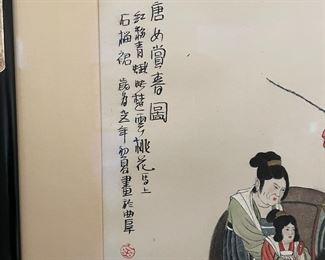 唐女賞春圖
紅粉青蛾映楚雲桃花馬上
石榴裙 之年 畫於曲阜